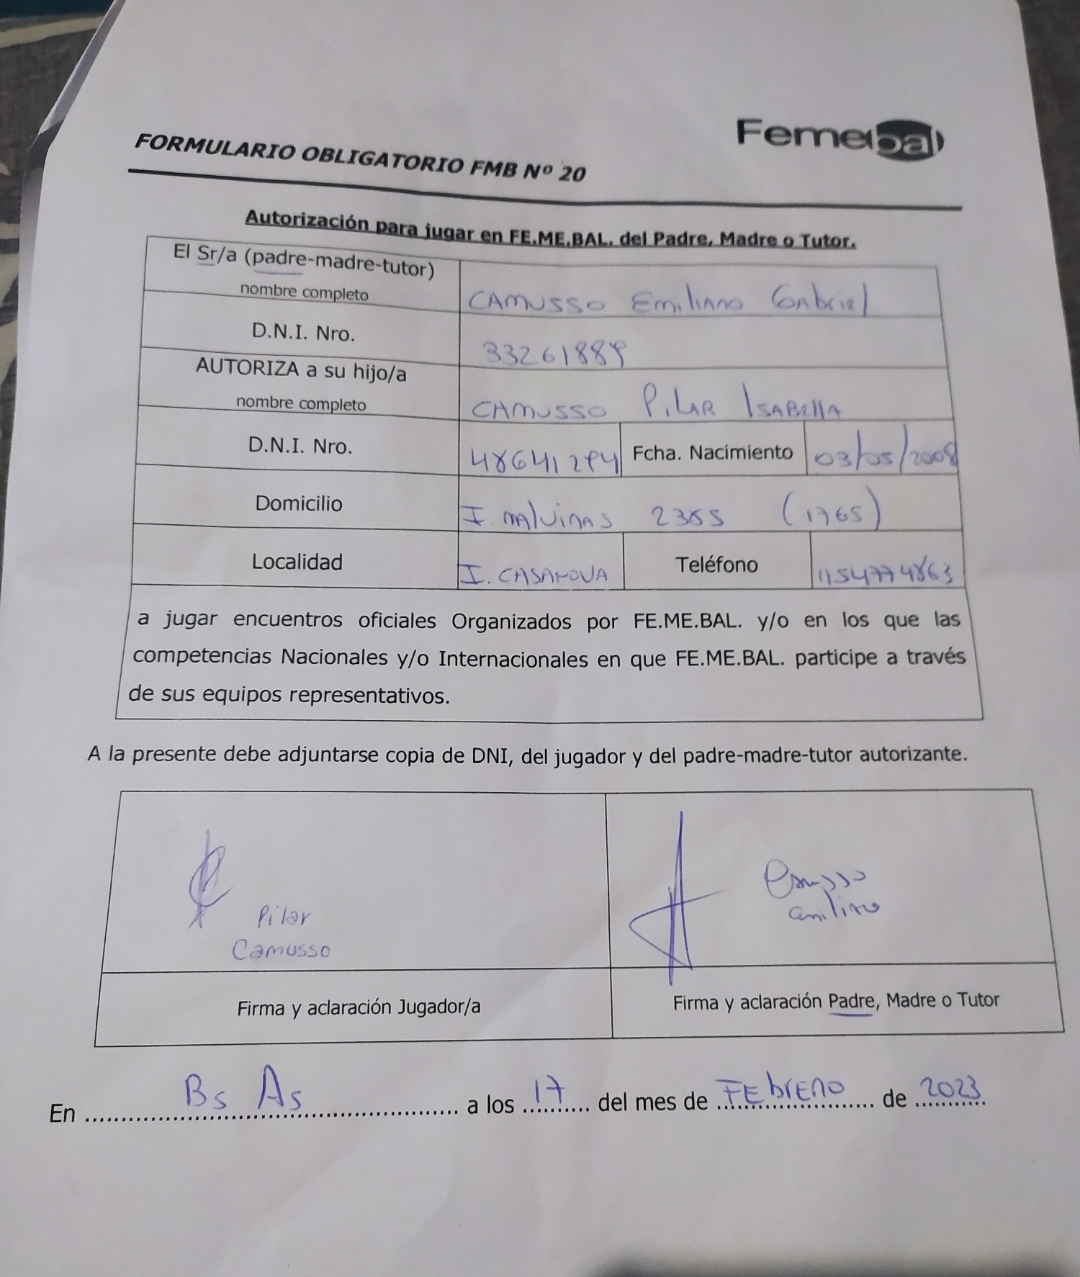 Femebal
FORMULARIO OBLIGATORIO FMB Nº 20
Autorización para jugar en FE.ME.BAL. del Padre, Madre o Tutor.
El Sr/a (padre-madre-tutor)
nombre completo
CAMUSSO Emiliano Gabriel
D.N.I. Nro.
33261889
AUTORIZA a su hijo/a
nombre completo
CAMUSSO PILAR ISABELLA
D.N.I. Nro.
48641294 Fcha. Nacimiento 03/05/2008
Domicilio
I. malvinas 2355 (1765)
Localidad
I. CASANOVA Teléfono 1154774863
a jugar encuentros oficiales Organizados por FE.ME.BAL. y/o en los que las
competencias Nacionales y/o Internacionales en que FE.ME.BAL. participe a través
de sus equipos representativos.
A la presente debe adjuntarse copia de DNI, del jugador y del padre-madre-tutor autorizante.
Pilar
Camusso
Camusso
Emiliano
Firma y aclaración Jugador/a
Firma y aclaración Padre, Madre o Tutor
En Bs As a los 17 del mes de FEbrERO de 2023